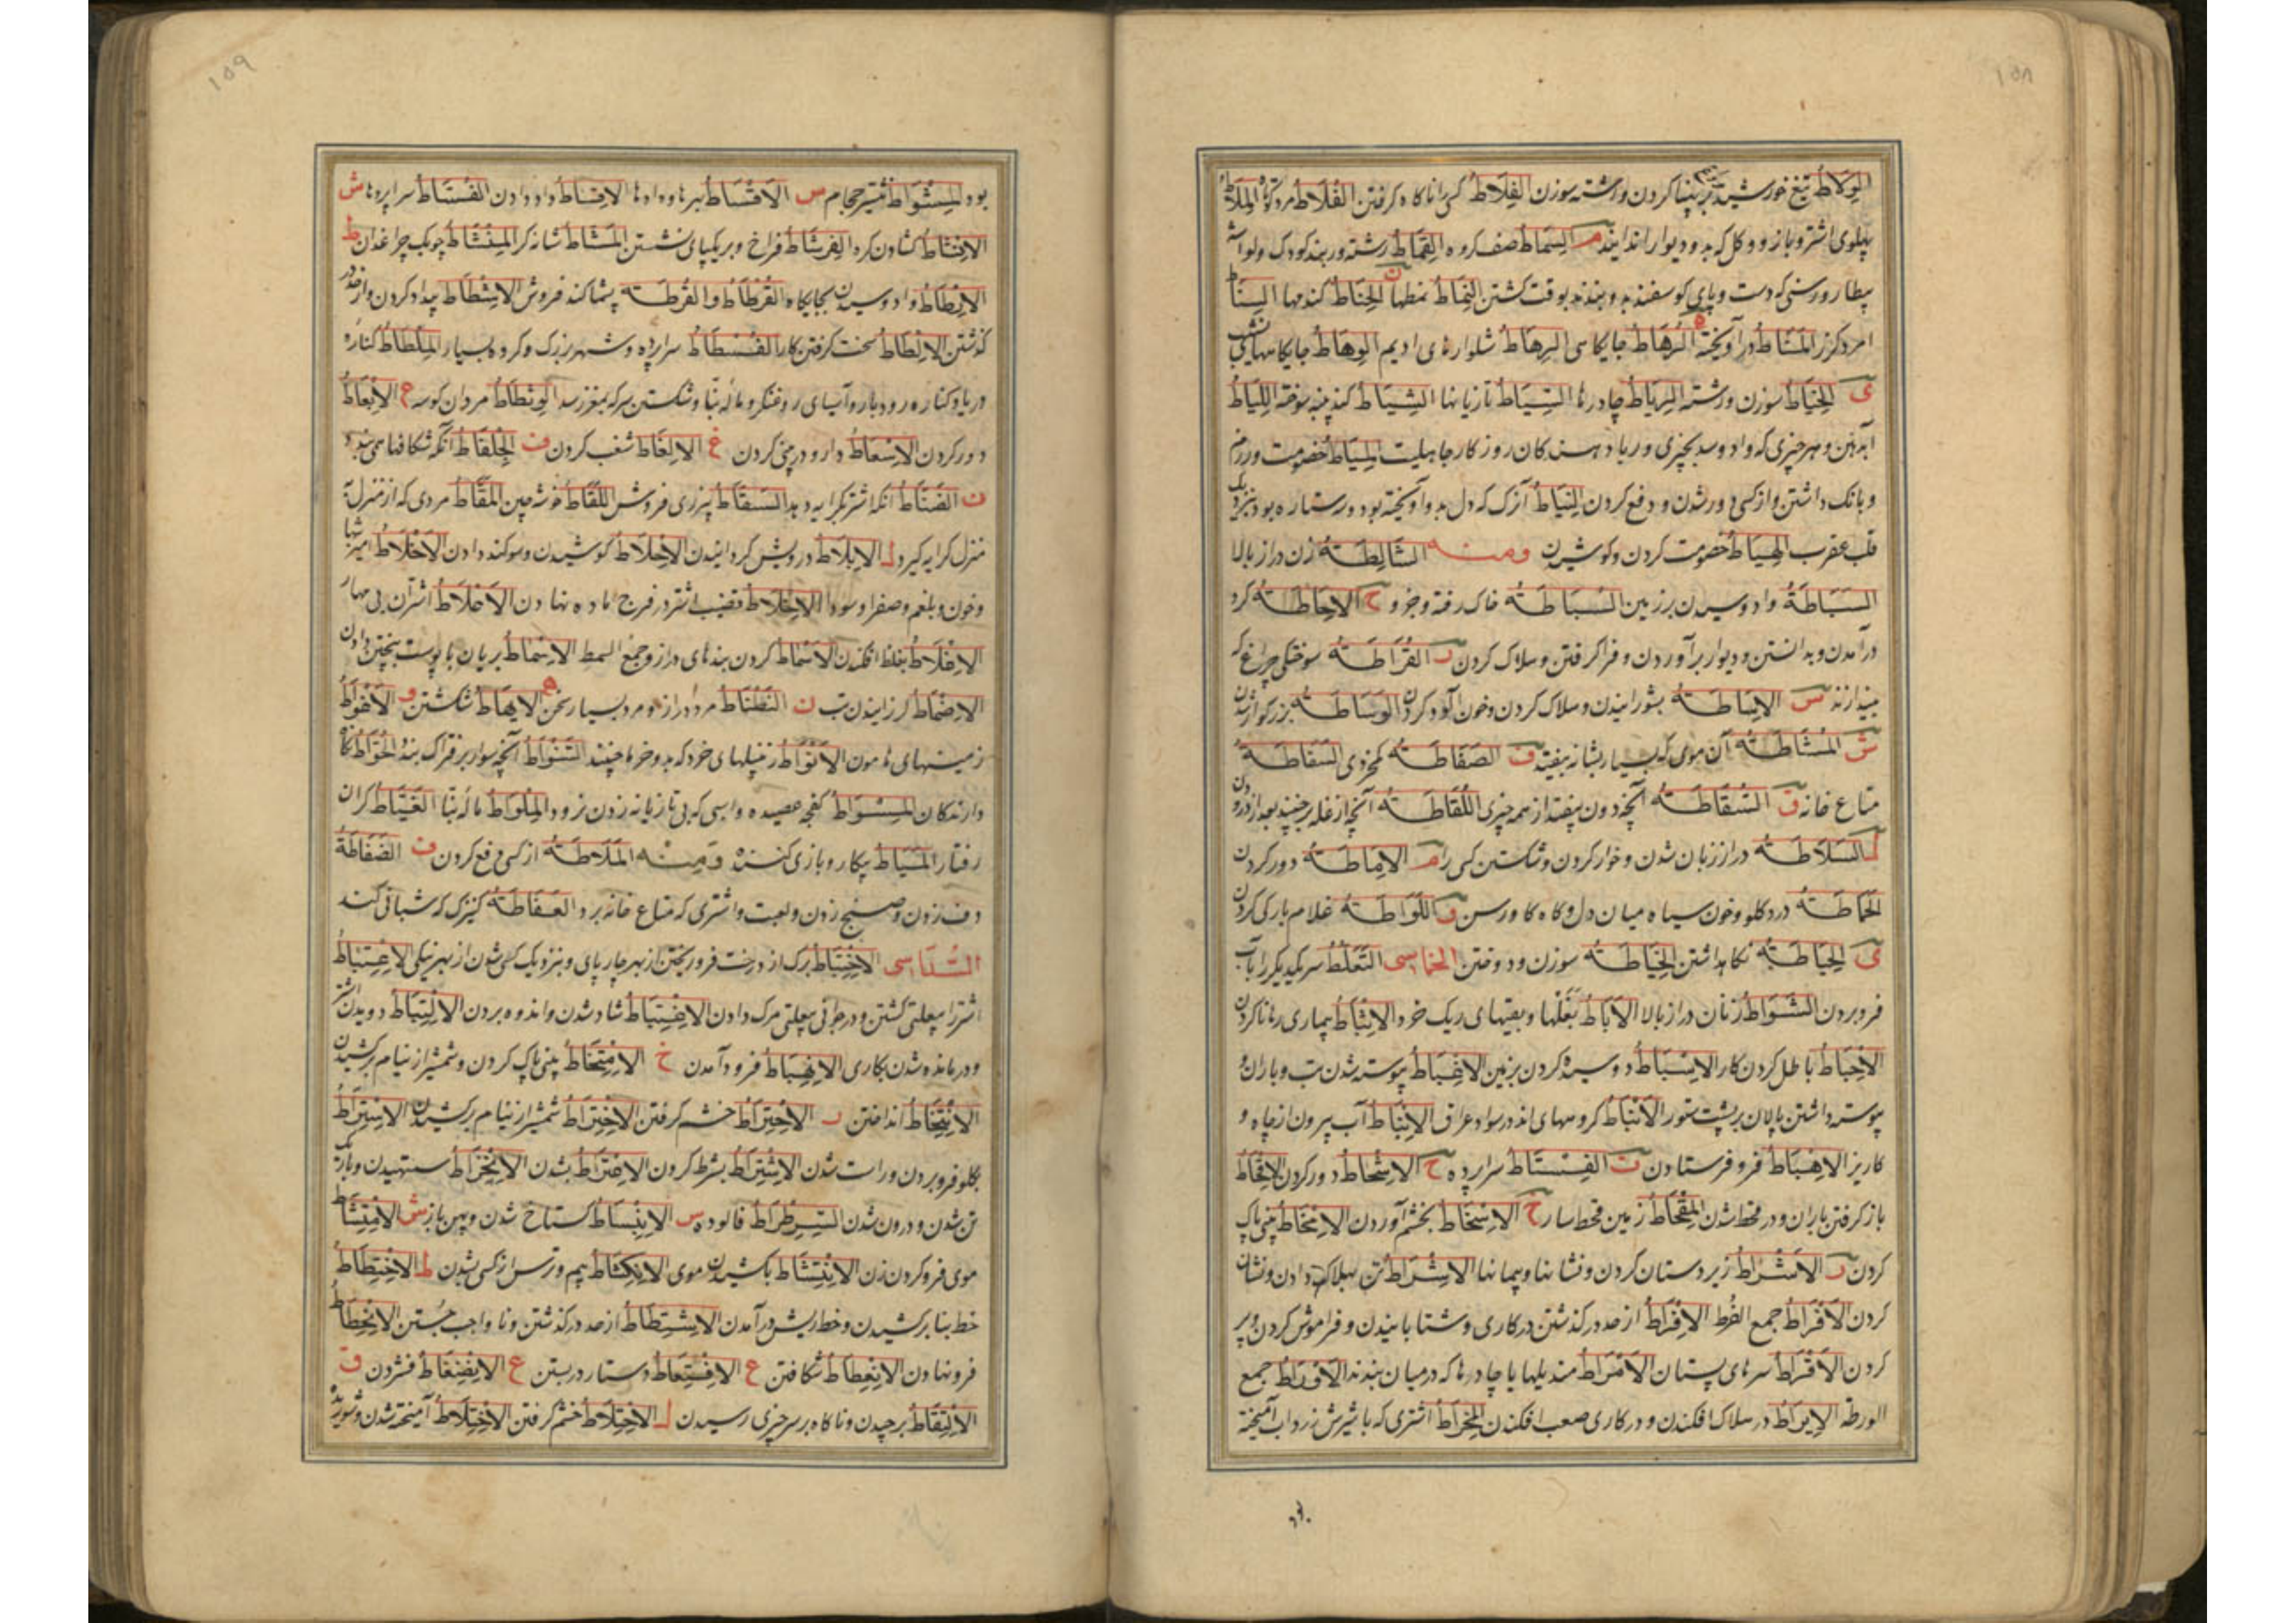 ١٥٨
پهلوی اشتر و بازو و گل که بدو دیوار اندایند م السماط صف گروه القماط رشته و ربند کودک و لواشه
بیطار و رسنی که دست و پای کوسفند بدو بندند بوقت کشتن النماط نمطها ن الحناط کندمها السناط
ی الخیاط سوزن و رشته الریاط چادرها السیاط تازیانها الشیاط کند پنبه سوخته اللیاط
و بانک داشتن و از کسی دور شدن و دفع کردن النیاط آن رک که دل بدو آویخته بود و ستاره بود بنزدیک
قلب عقرب الهیاط خصومت کردن و کوشیدن ومنه الشالطة زن دراز بالا
السباطة وادوسیدن بر زمین السباطة خاک رفته و جزو ح الاحاطة کرد
درآمدن و بدانستن و دیوار برآوردن و فرا کرفتن و هلاک کردن ر القراطة سوختکی چراغ که
بیندازند س الاساطة بشورانیدن و هلاک کردن و خون آلود کردن الوساطة بزرکوار شدن
ش المشاطة آن موی که بسیار بشانه بیفتد ف الصفاطة کم خردی السفاطة
متاع خانه ق السقاطة آنچه دون بیفتد از همه چیزی اللقاطة آنچه از غله برچینند بعد از درودن
ل السلاطة دراز زبان شدن و خوار کردن و شکستن کسی را م الاماطة دور کردن
الحماطة درد کلو و خون سیاه میان دل و کاه کاورسن و اللواطة غلام بارکی کردن
ی الحیاطة نکاه داشتن الخیاطة سوزن و دوختن الخماسی التعلط سر یکدیکر را بآب
فرو بردن الشوّاط زنان دراز بالا الآباط بغلها و بقیتهای ریک خرد الاثباط بیماری رها ناکردن
الاحباط باطل کردن کار الاسباط دوسیده کردن بزمین الاغباط پیوسته شدن تب و باران و
پیوسته داشتن پالان بر پشت ستور الانباط کروههای اند در سواد عراق الانباط آب بیرون از چاه و
کاریز الاهباط فرو فرستادن ت الفستاط سراپرده ح الاشحاط دور کردن الاقحاط
باز کرفتن باران و در قحط شدن المقحاط زمین قحط سار خ الاسخاط بخشم آوردن الامخاط بینی پاک
کردن ر الاشراط زیر دستان کردن و نشانها و پیمانها الاشراط تن بهلاک دادن و نشان
کردن الافراط جمع الفرط الافراط از حد در کذشتن در کاری و شتابانیدن و فراموش کردن و پر
کردن الاقراط سرهای پستان الامراط مندیلها یا چادرها که در میان بندند الاوراط جمع
الورطه الایراط در هلاک افکندن و در کاری صعب افکندن المخراط اشتری که با شیرش زرداب آمیخته
١٥٩
بود المشواط نیشتر حجام س الاقساط بهرها و دادها الاقساط داد دادن الفستاط سراپردها ش
الانشاط کشادن کره الفرشاط فراخ و بر یکپای نشستن المشاط شانه کر المنشاط چوبک چراغدان ط
الابطاط وادوسیدن بجایکاه القرطاط و القرطة پشماکند فروش الاشطاط بیداد کردن و از حد در
کذشتن الالطاط سخت کرفتن کار الفسطاط سراپرده و شهر بزرک و کروه بسیار الملطاط کناره
دریا و کناره رودبار و آسیای روغنکر و ماله بنا و شکستن سر که بمغز رسد الوطواط مردان کوسه ع الابعاط
دور کردن الاسعاط دارو در بینی کردن غ الالغاط شغب کردن ف الجلفاط آنکه شکافها می بندد
ف الضفاط آنکه اشتر بکرایه دهد السقاط پیزری فروش اللقاط خوشه چین المقاط مردی که از منزل تا
منزل کرایه کیرد ل الابلاط درویش کردانیدن الاحلاط کوشیدن و سوکند دادن الاخلاط آمیزشها
و خون و بلغم و صفرا و سودا الاخلاط قضیب اشتر در فرج ماده نهادن الاخلاط اشتران بی مهار
الاغلاط بغلط افکندن الاسماط کردن بندهای دراز و جمع السمط الاسماط بریان با پوست بپختن دادن
زمینهای هامون الانواط زنبیلهای خرد که بدو خرما چینند التنواط آنچه سوار بر فتراک بندد الحوّاط نکاه
دارندکان المسواط کفچه عصیده و اسپی که بی تازیانه زدن نرود الملواط ماله بنا الغیاط کران
رفتار المیاط بیکار و بازی کننده ومنه الملاطة از کسی دفع کردن ف الضفاطة
دف زدن و صنج زدن و لعبت و اشتری که متاع خانه برد العفاطة کنیزک که شبانی کند
السداسی الاختباط برک از درخت فرو ریختن از بهر چارپای و بنزدیک کسی شدن از بهر نیکی الاعتباط
اشتر را بیعلتی کشتن و در جوانی بیعلتی مرک دادن الاغتباط شاد شدن و اندوه بردن الالتباط دویدن اشتر
و درمانده شدن بکاری الانهباط فرود آمدن خ الامتخاط بینی پاک کردن و شمشیر از نیام برکشیدن
الانتخاط انداختن ر الاحتراط خشم کرفتن الاختراط شمشیر از نیام برکشیدن الاستراط
بکلو فرو بردن و راست شدن الاشتراط بشرط کردن الاضراط بشدن الانخراط ستهیدن و باریک
تن شدن و درون شدن السرطراط فالوده س الانبساط کستاخ شدن و پهن باز ش الامتشاط
موی فرو کردن زن الانتشاط باکشیدن موی الانکشاط بیم و ترس از کسی شدن ط الاختطاط
خط بنا برکشیدن و خط ریش درآمدن الاشتطاط از حد در کذشتن و نا واجب جستن الانحطاط
فرو نهادن الانعطاط شکافتن ع الاقتعاط دستار در بستن غ الانضغاط فشردن ق
الالتقاط برچیدن و ناکاه بر سر چیزی رسیدن ل الاحتلاط خشم کرفتن الاختلاط آمیخته شدن و شوریده